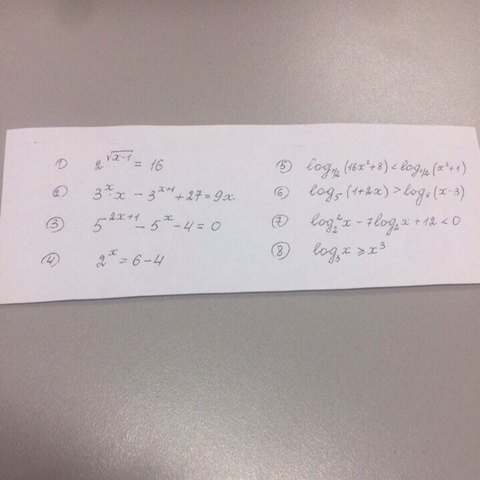 ① 2^√(x-1) = 16
② 3^x · x - 3^(x+1) + 27 = 9x
③ 5^(2x+1) - 5^x - 4 = 0
④ 2^x = 6 - 4
⑤ log_1/2 (16x²+8) < log_1/2 (x²+1)
⑥ log_5 (1+2x) > log_5 (x-3)
⑦ log_2² x - 7 log_2 x + 12 < 0
⑧ log_3 x ⩾ x³